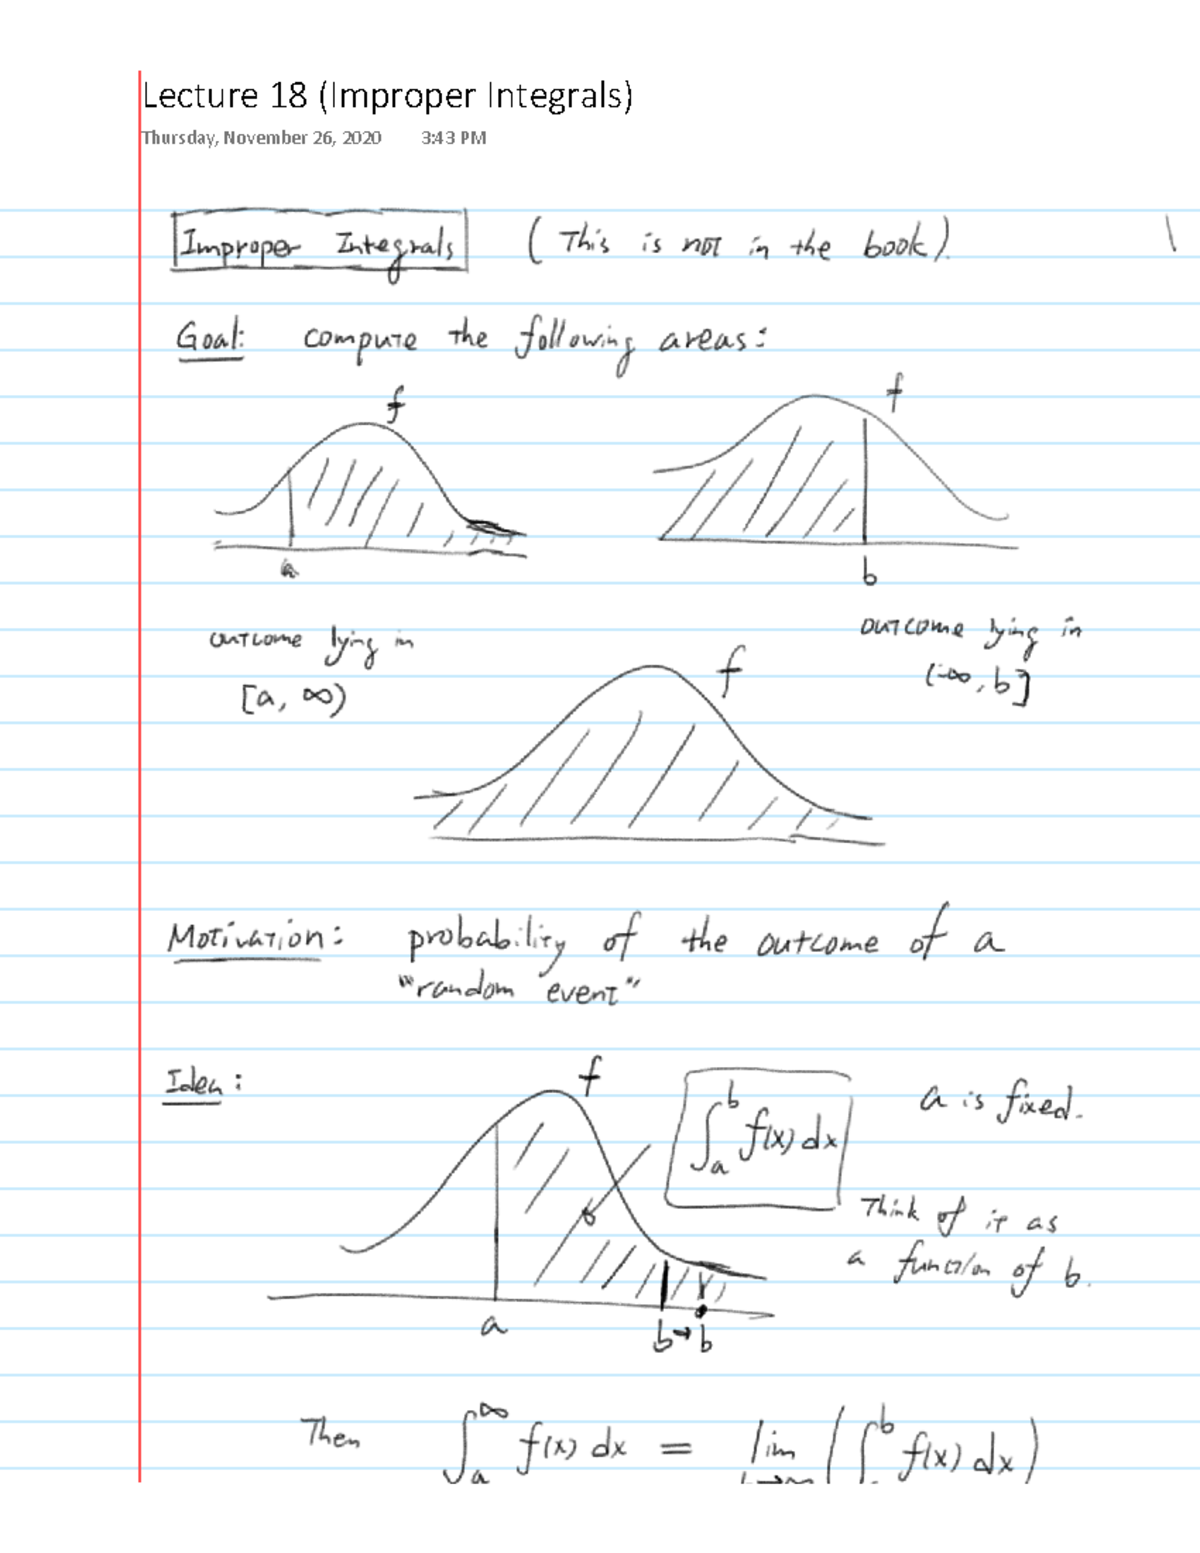 Lecture 18 (Improper Integrals)
Thursday, November 26, 2020 3:43 PM
Improper Integrals (This is not in the book).
Goal: compute the following areas:
f f
a b
outcome lying in [a, ∞)
outcome lying in (-∞, b]
f
Motivation: probability of the outcome of a
"random event"
Idea: f ∫_a^b f(x) dx a is fixed.
Think of it as
a function of b.
a b→b
Then ∫_a^∞ f(x) dx = lim (∫^b f(x) dx)